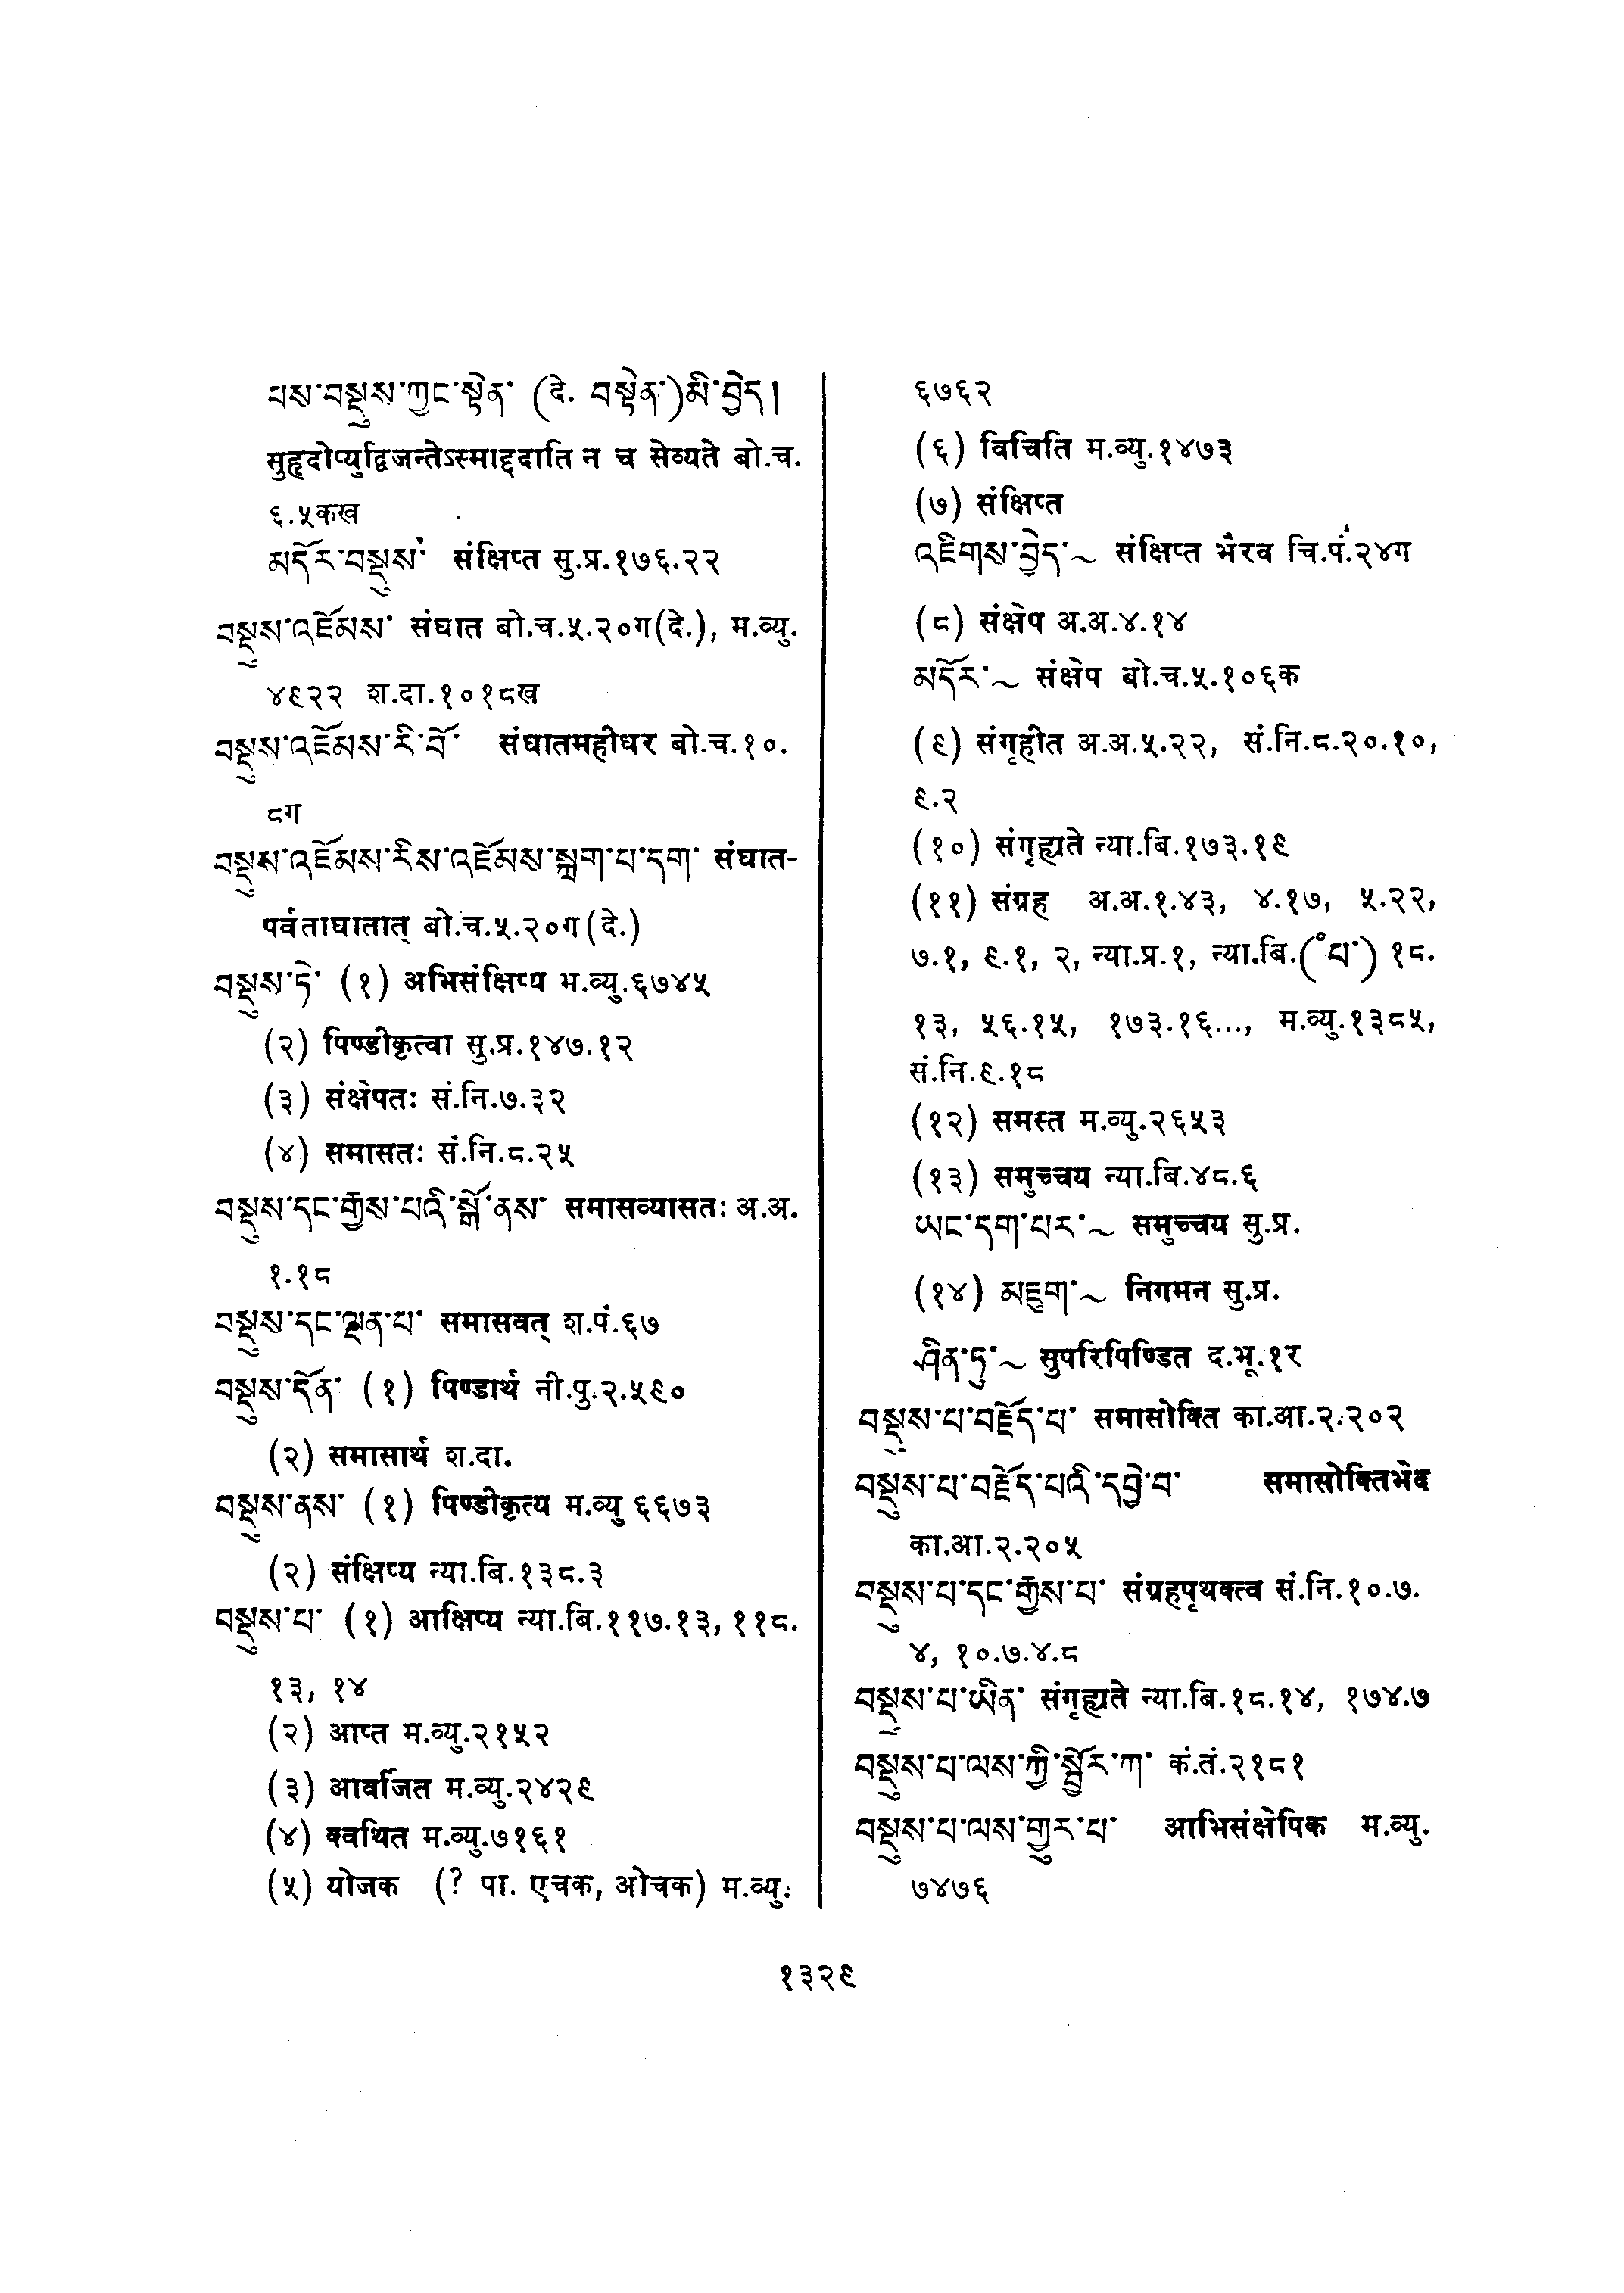 པས་བསྡུས་ཀྱང་སྟེན་ (दे. བསྟེན་)མི་བྱེད།
सुहृदोप्युद्विजन्तेऽस्माद्ददाति न च सेव्यते बो.च.
६.५कख
མདོར་བསྡུས་ संक्षिप्त सु.प्र.१७६.२२
བསྡུས་འཇོམས་ संघात बो.च.५.२०ग(दे.), म.व्यु.
४९२२ श.दा.१०१८ख
བསྡུས་འཇོམས་རི་བོ་ संघातमहीधर बो.च.१०.
८ग
བསྡུས་འཇོམས་རིས་འཇོམས་སྐྲག་པ་དག་ संघात-
पर्वताघातात् बो.च.५.२०ग(दे.)
བསྡུས་ཏེ་ (१) अभिसंक्षिप्य म.व्यु.६७४५
(२) पिण्डीकृत्वा सु.प्र.१४७.१२
(३) संक्षेपतः सं.नि.७.३२
(४) समासतः सं.नि.८.२५
བསྡུས་དང་རྒྱས་པའི་སྒོ་ནས་ समासव्यासतः अ.अ.
१.१८
བསྡུས་དང་ལྡན་པ་ समासवत् श.पं.६७
བསྡུས་དོན་ (१) पिण्डार्थ नी.पु.२.५९०
(२) समासार्थ श.दा.
བསྡུས་ནས་ (१) पिण्डीकृत्य म.व्यु ६६७३
(२) संक्षिप्य न्या.बि.१३८.३
བསྡུས་པ་ (१) आक्षिप्य न्या.बि.११७.१३, ११८.
१३, १४
(२) आप्त म.व्यु.२१५२
(३) आर्वाजत म.व्यु.२४२९
(४) क्वथित म.व्यु.७१६१
(५) योजक (? पा. एचक, ओचक) म.व्यु.
६७६२
(६) विचिति म.व्यु.१४७३
(७) संक्षिप्त
འཇིགས་བྱེད་~ संक्षिप्त भैरव चि.पं.२४ग
(८) संक्षेप अ.अ.४.१४
མདོར་~ संक्षेप बो.च.५.१०६क
(९) संगृहीत अ.अ.५.२२, सं.नि.८.२०.१०,
९.२
(१०) संगृह्यते न्या.बि.१७३.१९
(११) संग्रह अ.अ.१.४३, ४.१७, ५.२२,
७.१, ९.१, २, न्या.प्र.१, न्या.बि.(॰པ་) १८.
१३, ५६.१५, १७३.१६..., म.व्यु.१३८५,
सं.नि.९.१८
(१२) समस्त म.व्यु.२६५३
(१३) समुच्चय न्या.बि.४८.६
ཡང་དག་པར་~ समुच्चय सु.प्र.
(१४) མཇུག་~ निगमन सु.प्र.
ཤིན་ཏུ་~ सुपरिपिण्डित द.भू.१र
བསྡུས་པ་བརྗོད་པ་ समासोक्ति का.आ.२.२०२
བསྡུས་པ་བརྗོད་པའི་དབྱེ་བ་ समासोक्तिभेद
का.आ.२.२०५
བསྡུས་པ་དང་རྒྱས་པ་ संग्रहपृथक्त्व सं.नि.१०.७.
४, १०.७.४.८
བསྡུས་པ་ཡིན་ संगृह्यते न्या.बि.१८.१४, १७४.७
བསྡུས་པ་ལས་ཀྱི་སྦྱོར་ཀ་ कं.तं.२१८१
བསྡུས་པ་ལས་གྱུར་པ་ आभिसंक्षेपिक म.व्यु.
७४७६
१३२९